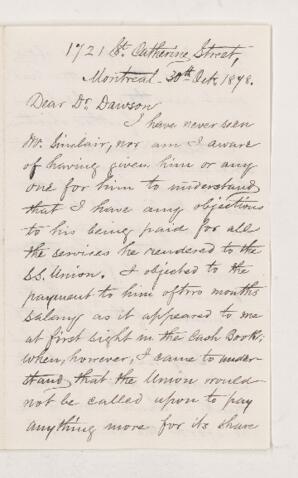 1721 St. Catherine Street,
Montreal 30th Oct. 1878.
Dear Dr. Dawson
I have never seen
Mr. Sinclair, nor am I aware
of having given him or any
one for him to understand
that I have any objections
to his being paid for all
the services he rendered to the
S.S. Union. I objected to the
payment to him of two months
salary as it appeared to me
at first sight in the Cash Book;
when, however, I came to under-
stand that the Union would
not be called upon to pay
anything more for its share